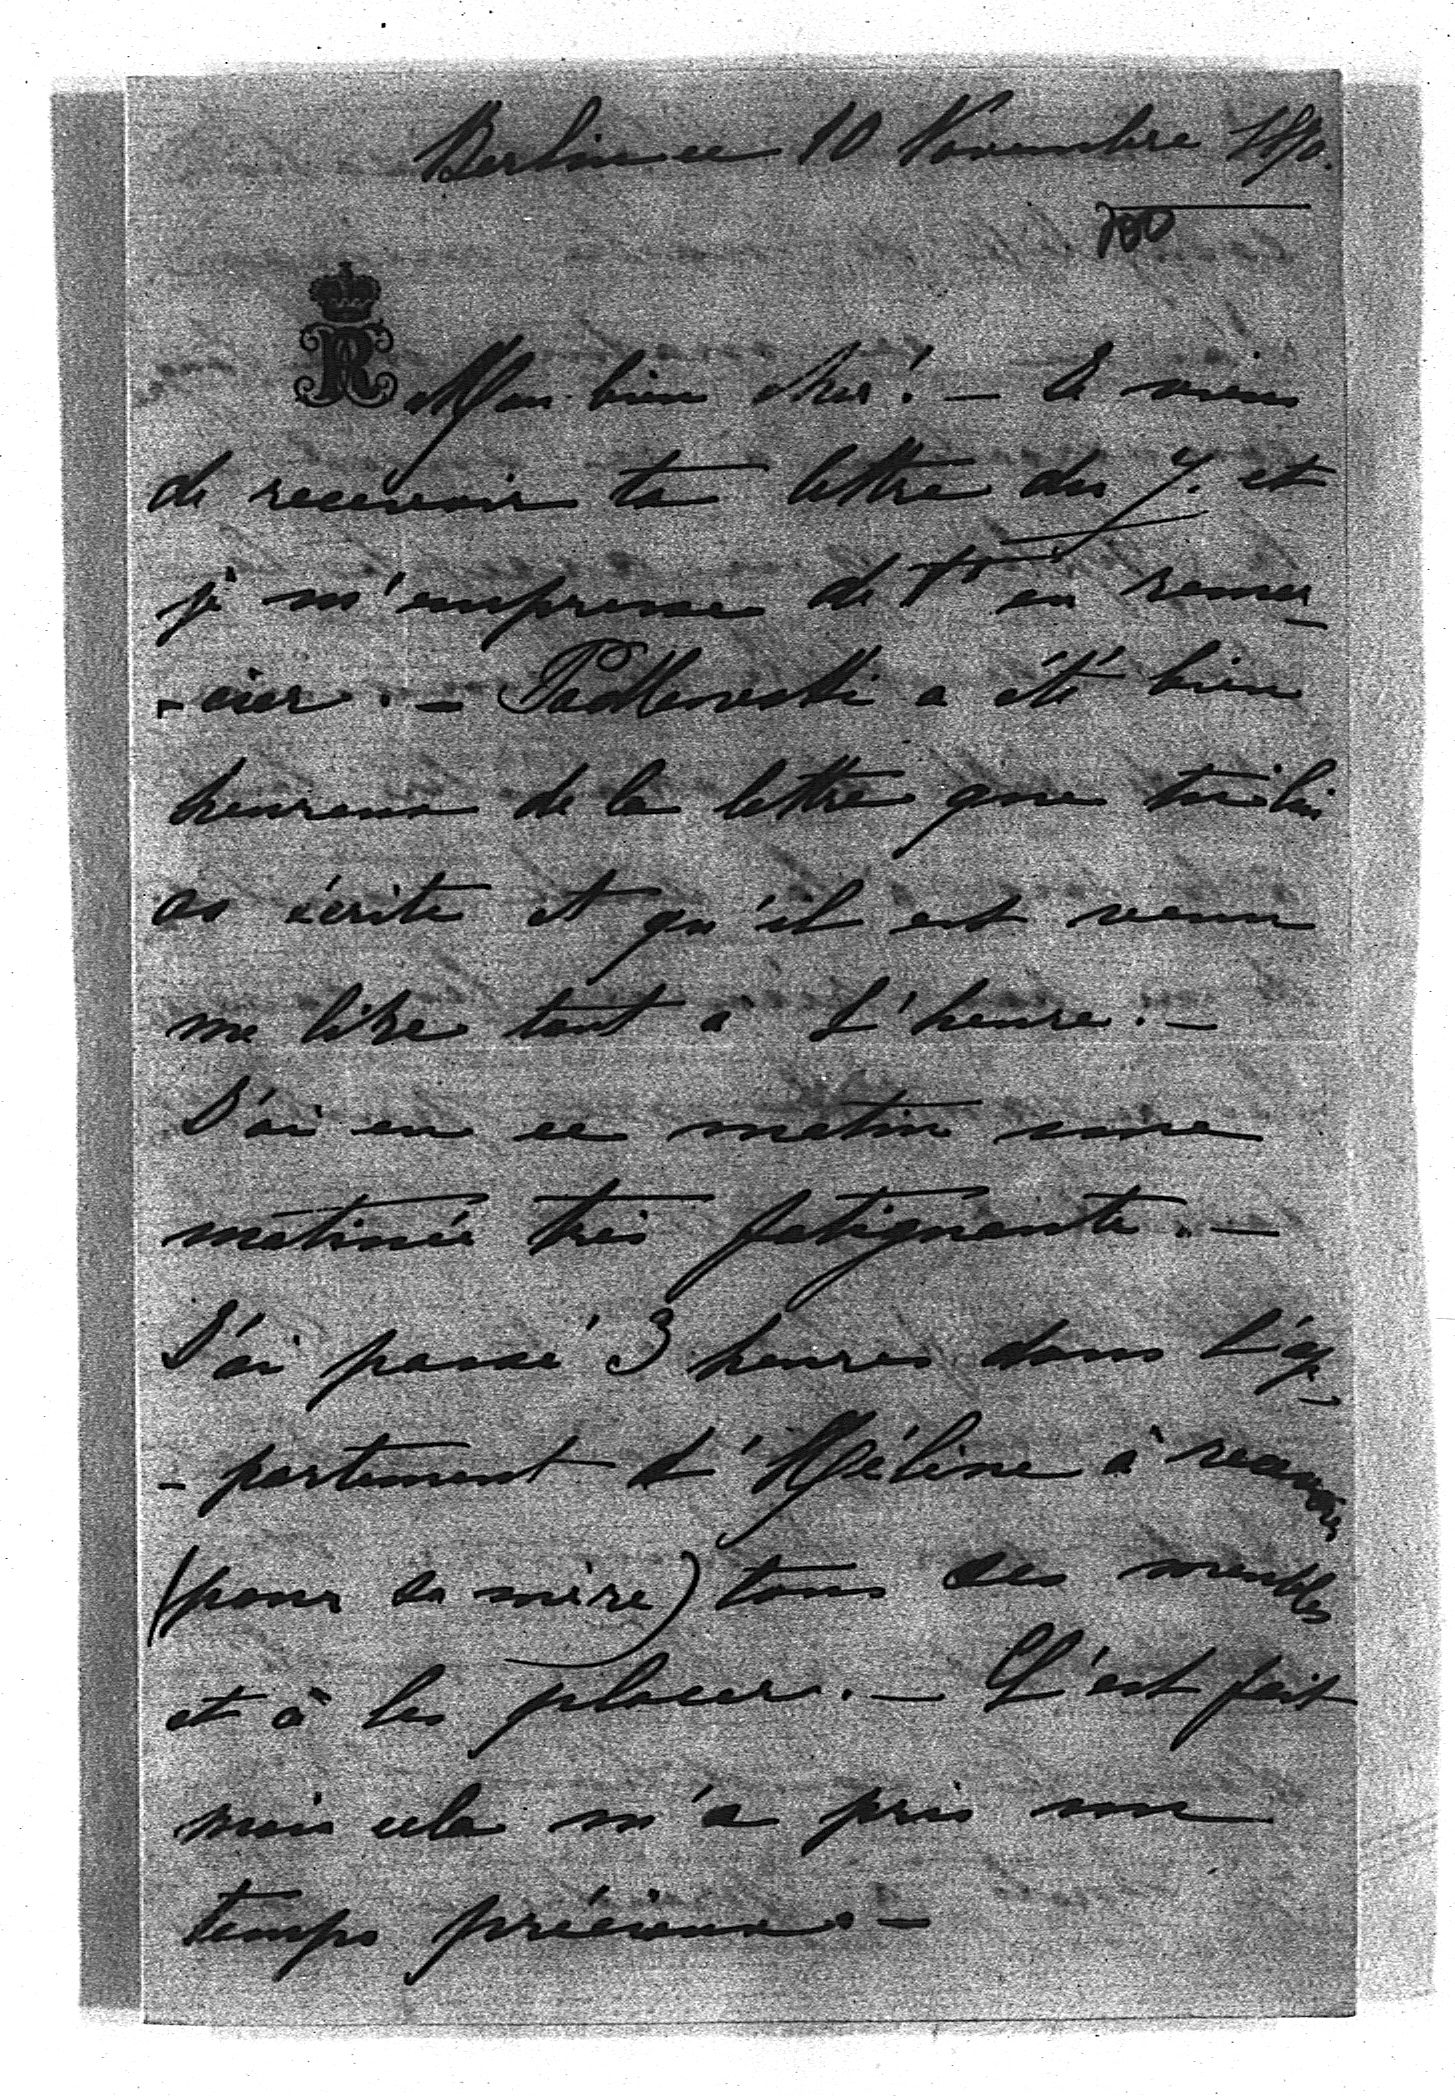 Berlin ce 10 Novembre 1890.
R
Mon bien cher! — Je viens
de recevoir ta lettre du 7. et
je m'empresse de t'en remer-
-cier. — Padlewski a été bien
heureux de la lettre que tu lui
as écrite et qu'il est venu
me lire tout à l'heure. —
J'ai eu ce matin une
matinée très fatigante. —
J'ai passé 3 heures dans l'ap-
-partement d'Hélène à recevoir
(pour sa mère) tous ses meubles
et à les placer. — C'est fait
mais cela m'a pris un
temps précieux. —